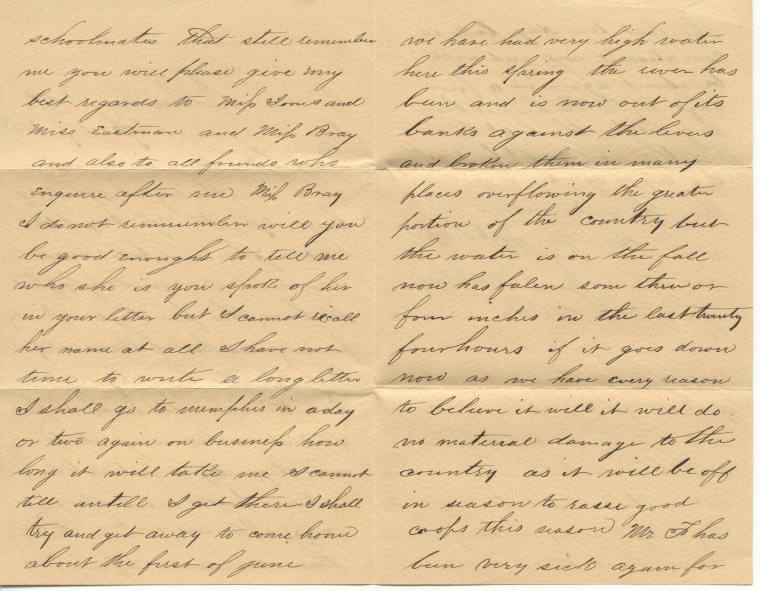 schoolmates that still remember
me you will please give my
best regards to Miss Jones and
Miss Eastman and Miss Bray
and also to all friends who
enquire after me Miss Bray
I do not remmember will you
be good enought to tell me
who she is you spoke of her
in your letter but I cannot recall
her name at all I have not
time to write a long letter
I shall go to memphis in a day
or two again on business how
long it will take me I cannot
tell untill I get there I shall
try and get away to come home
about the first of june
we have had very high water
here this spring the river has
been and is now out of its
banks against the levees
and broken them in many
places overflowing the greater
portion of the country but
the water is on the fall
now has falen som three or
four inches in the last twenty
four hours if it goes down
now as we have every reason
to believe it will it will do
no material damage to the
country as it will be off
in season to rasse good
crops this season Mr has
been very sick again for